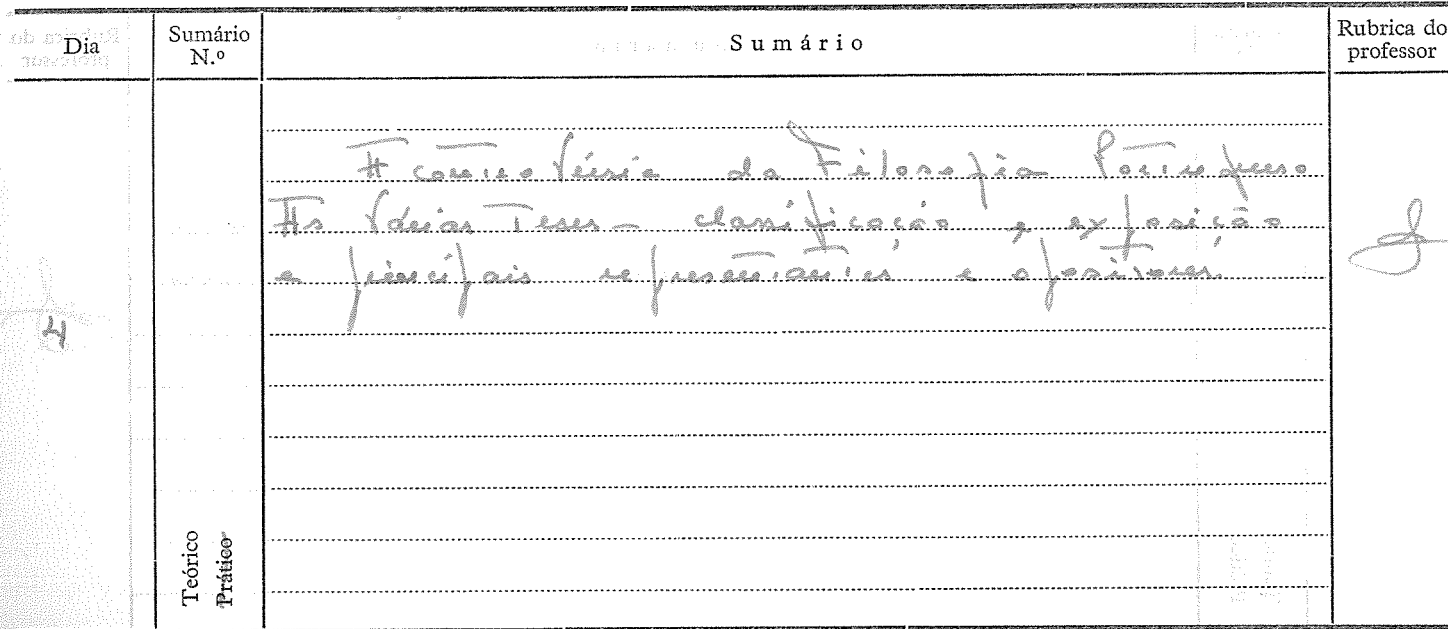 Dia Sumário N.º Sumário Rubrica do professor
A controvérsia da Filosofia Portuguesa
As várias Teses – classificação, exposição
e principais representantes e opositores.
4
Teórico
Prático